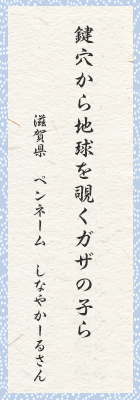 鍵穴から地球を覗くガザの子ら
滋賀県 ペンネーム しなやかーるさん